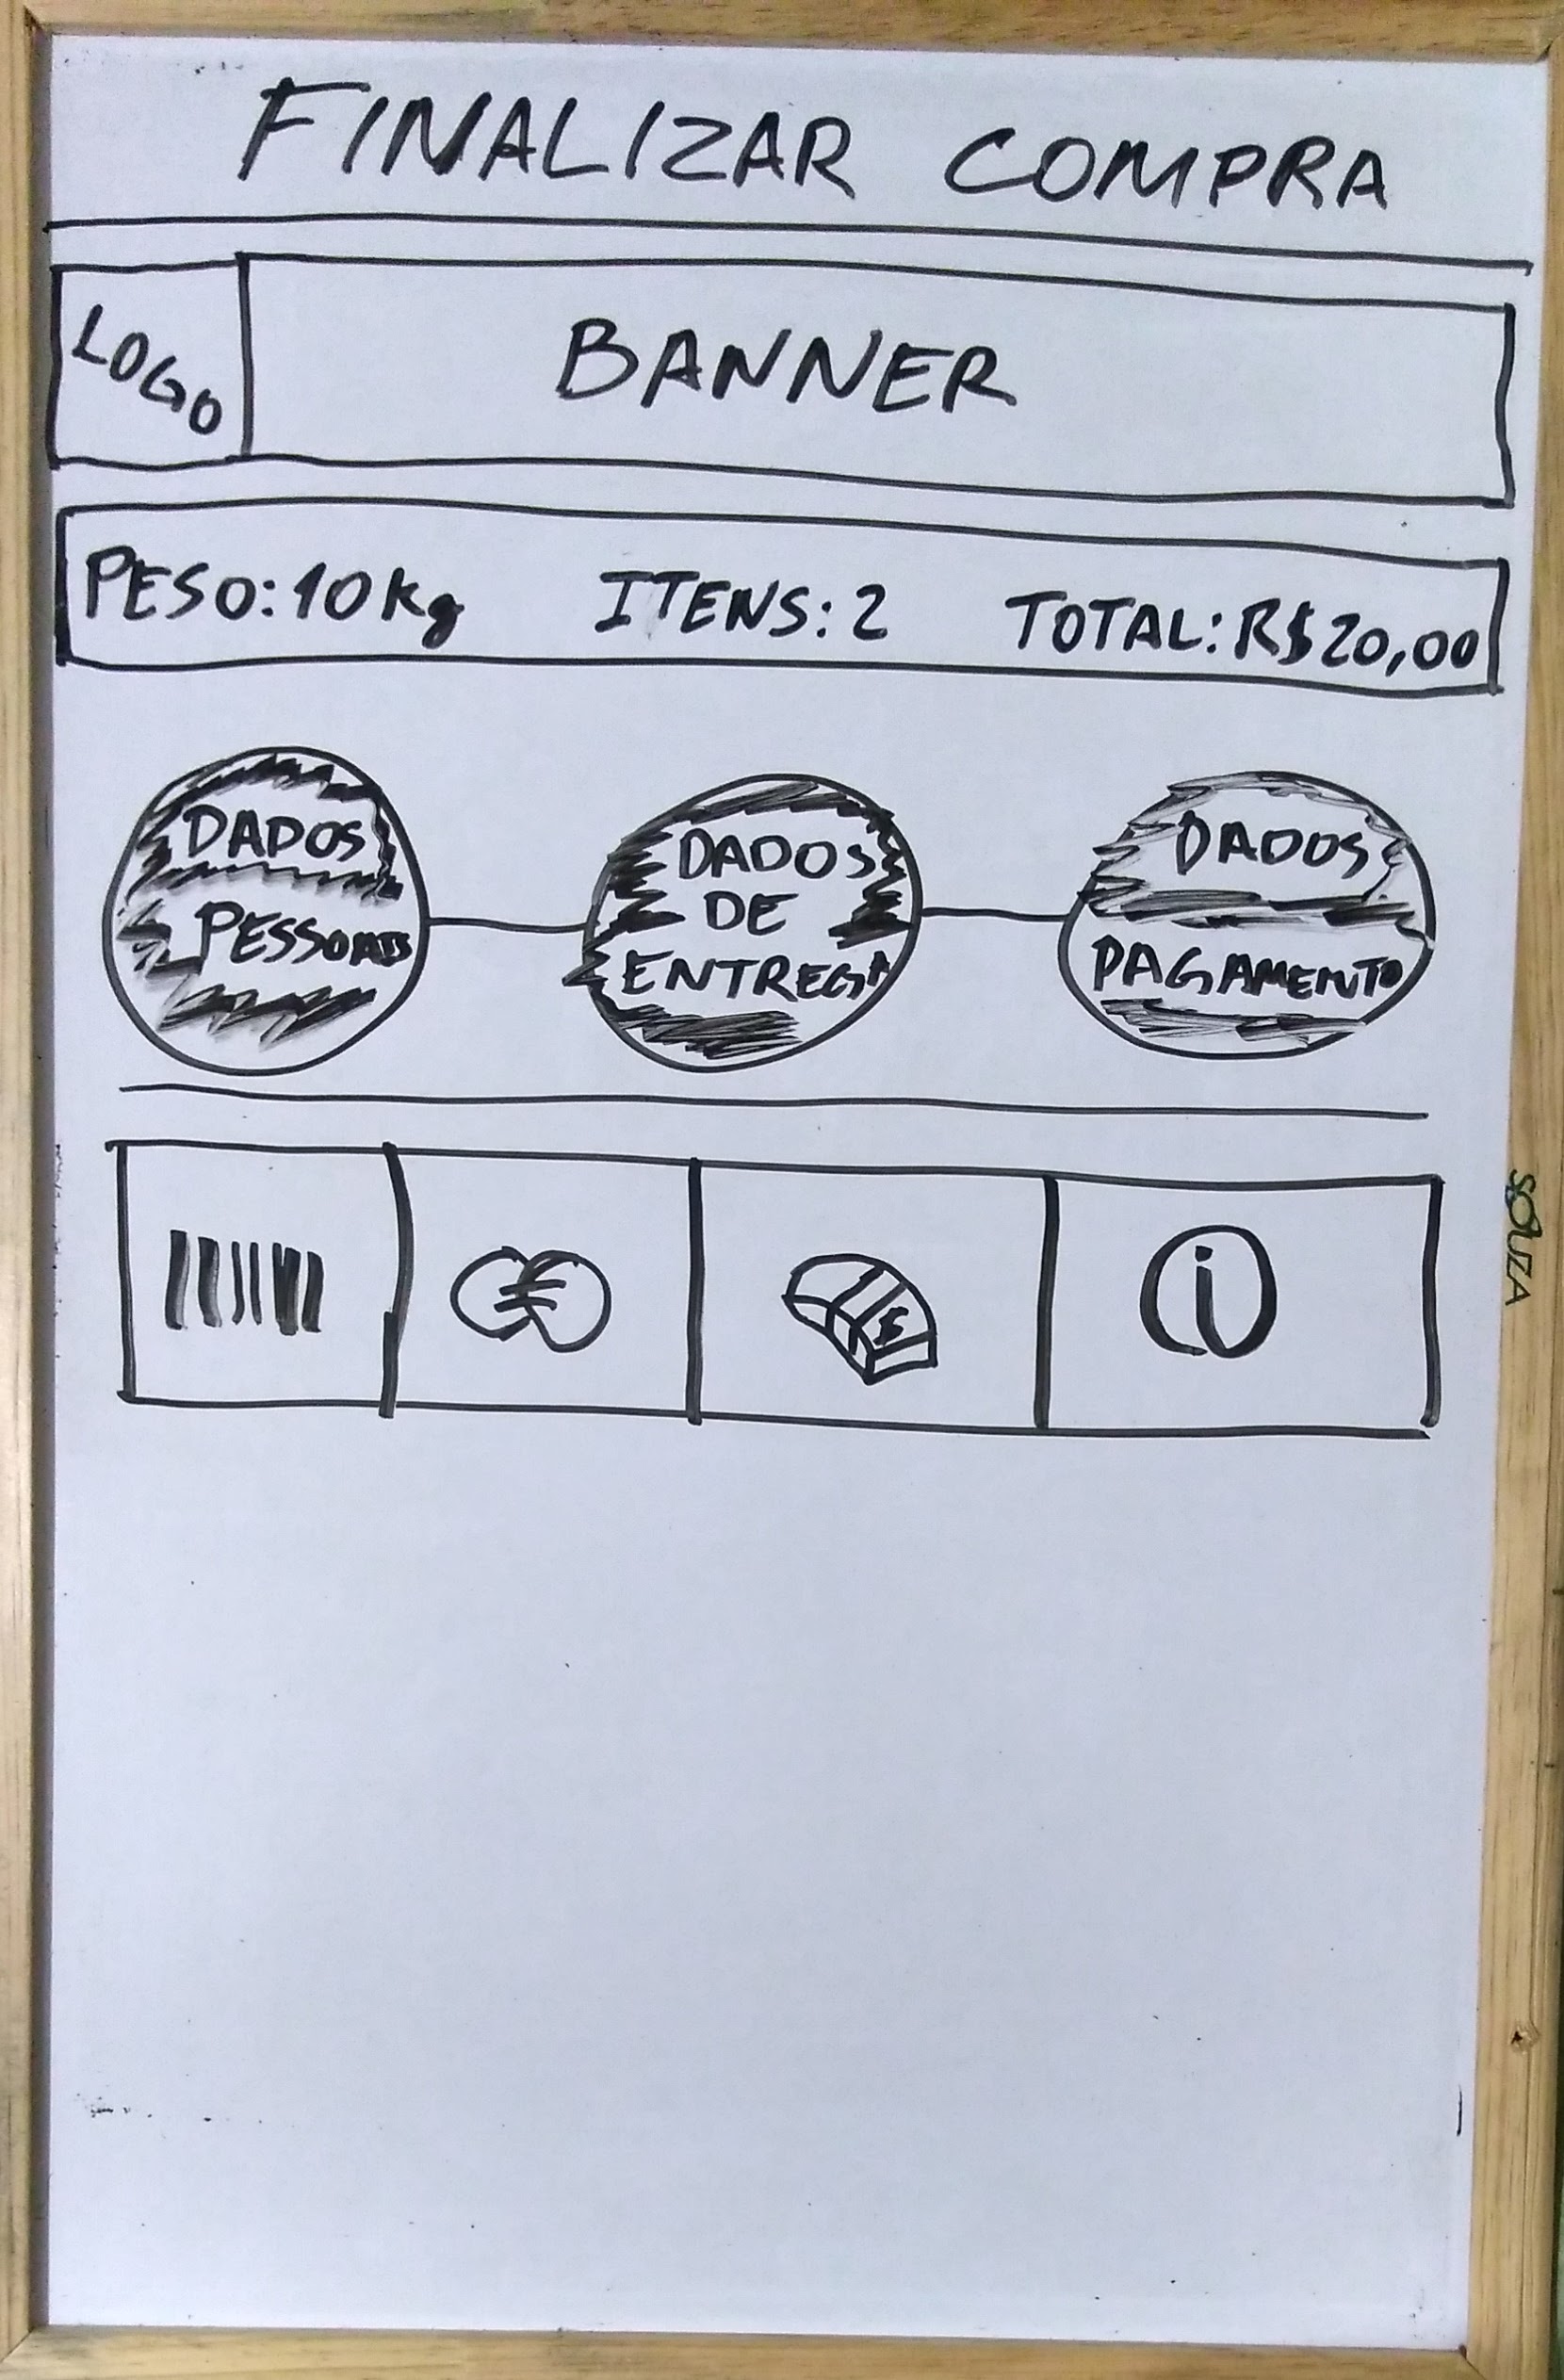 FINALIZAR COMPRA
LOGO
BANNER
PESO: 10 kg ITENS: 2 TOTAL: R$ 20,00
DADOS
PESSOAIS
DADOS
DE
ENTREGA
DADOS
PAGAMENTO
$
i
SOUZA